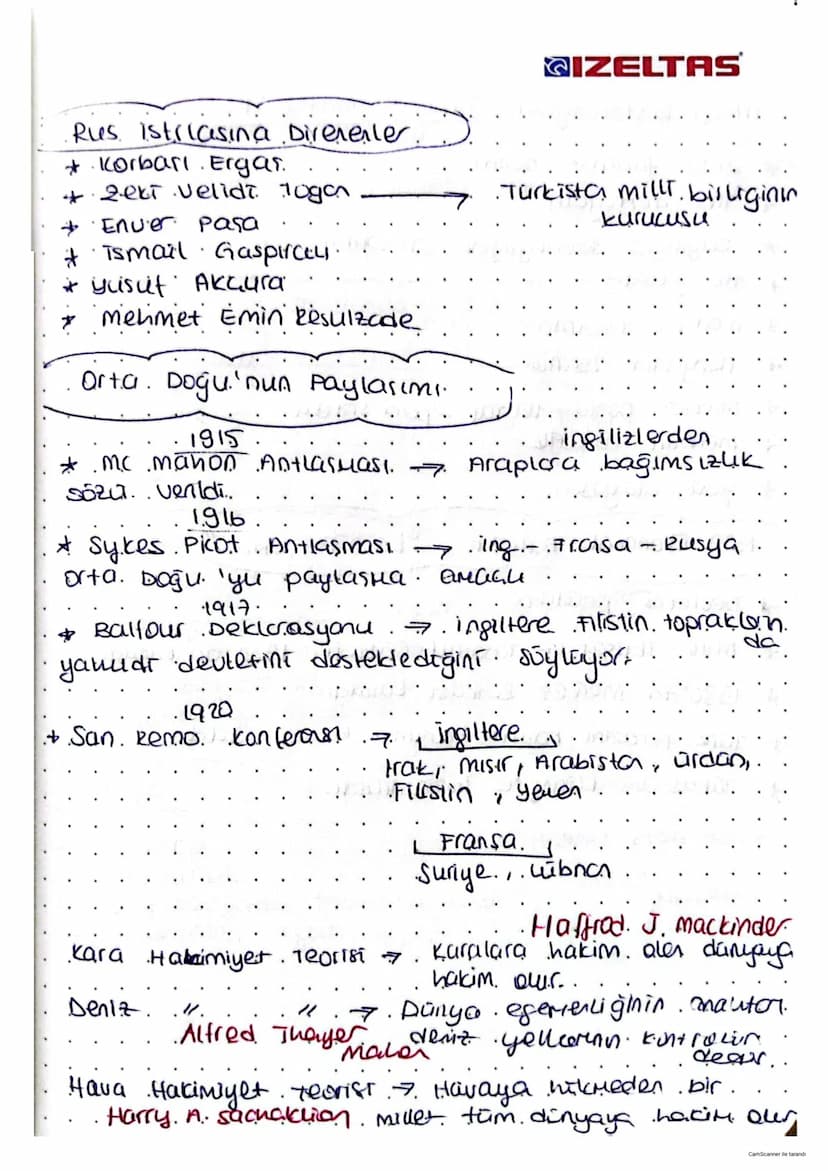 IZELTAS
Rus istilasına Direnenler
* Korbaşı Ergaş
* Zeki Velidi Togan → Türkistan milli birliğinin
kurucusu
* Enver Paşa
* İsmail Gaspıralı
* Yusuf Akçura
* Mehmet Emin Resulzade
Orta Doğu'nun Paylaşımı
1915 ingilizlerden
* Mc Mahon Antlaşması → Araplara bağımsızlık
sözü verildi.
1916
* Sykes Picot Antlaşması → ing - Fransa - Rusya
Orta Doğu'yu paylaşma amaçlı
1917
* Balfour Deklarasyonu → ingiltere Filistin toprakların
da
yahudi devletini desteklediğini söylüyor.
1920
* San Remo Konferansı → İngiltere
Irak, mısır, Arabistan, ürdün,
Filistin, yemen
Fransa
Suriye, Lübnan
Halfrod J. Mackinder
Kara Hakimiyet Teorisi → Karalara hakim olan dünyaya
hakim olur.
Deniz " " → Dünya egemenliğinin anahtarı
Alfred Thayer deniz yollarının kontrolün
Mahan dedir.
Hava Hakimiyet Teorisi → Havaya hükmeden bir
Harry A. Sachaklian millet tüm dünyaya hakim olur
CamScanner ile tarandı